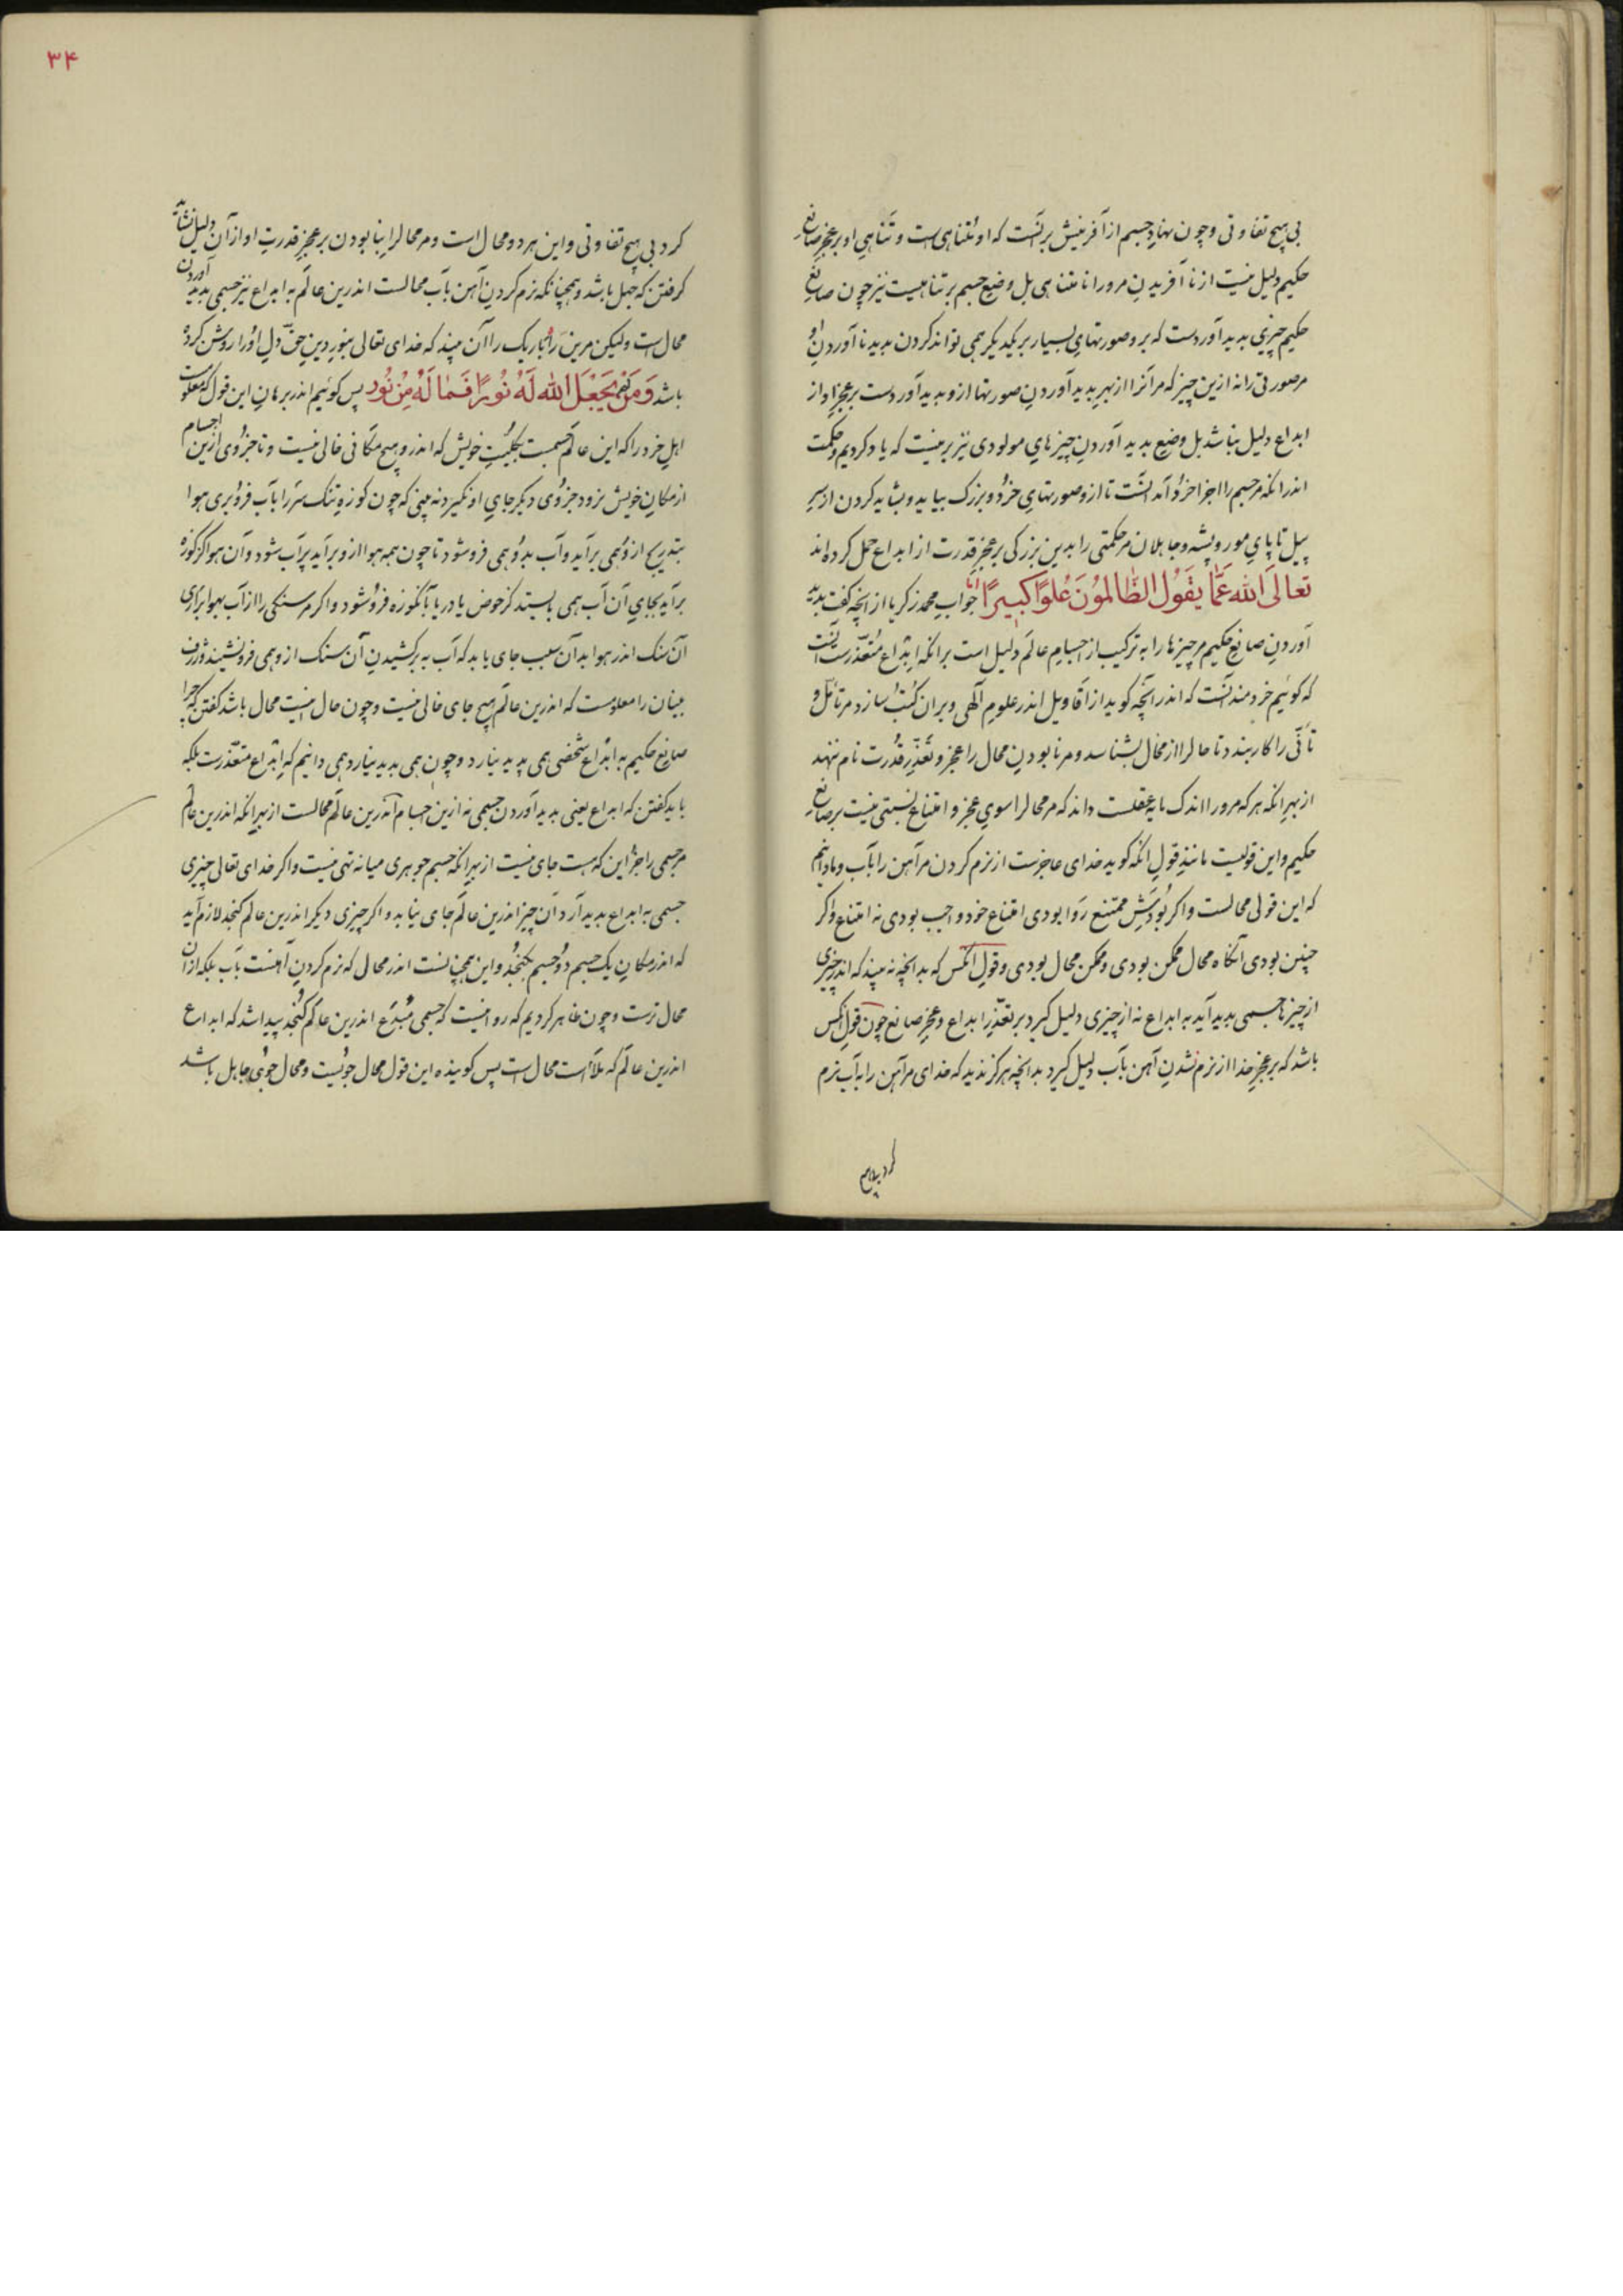 بی هیچ تفاوتی و چون نهادِ جسم از آفرینش بر آنست که او متناهی است و تناهیِ او بر عجزِ صانعِ
حکیم دلیل نیست از نا آفریدنِ مرورا نا متناهی بل وضعِ جسم بر تناهیست نیز چون صانعِ
حکیم چیزی بدید آوردست که برو صورتهایِ بسیار بر یکدیگر همی تواند کردن بدید نا آوردنِ او
مر صورتی را نه ازین چیز که مر آنرا از بهرِ بدید آوردنِ صورتها ازو بدید آوردست بر عجزِ او از
ابداع دلیل نباشد بل وضعِ بدید آوردنِ چیزهایِ مولودی نیز برینست که یاد کردیم و حکمت
اندر انکه مر جسم را اجزا خرُد آمد آنست تا ازو صورتهایِ خرُد و بزرک بیاید و بشاید کردن از سرِ
پیل تا پایِ مور و پشه و جاهلان مر حکمتی را بدین بزرکی بر عجزِ قدرت از ابداع حمل کرده‌اند
تَعالَی الله عَمَّا یَقُولُ الظَّالِمُونَ عُلُوًّا کَبِیرًا امّا جوابِ محمد زکریا از انچه کفت بدید
آوردنِ صانعِ حکیم مر چیزها را به ترکیب از اجسامِ عالم دلیل است برانکه ابداع متعذّرست آنست
که کوئیم خردمند آنست که اندر آنچه کوید از اقاویل اندر علومِ الهی و بران کُتُب سازد مر تأمّل و
تأنّی را کار بندد تا حال را از محال بشناسد و مر نابودنِ محال را عجز و تعذّرِ قدرت نام ننهد
از بهرِ انکه هر که مرورا اندک مایه عقلست داند که مر محال را سویِ عجز و امتناع نسبتی نیست بر صانعِ
حکیم و این قولیست مانندِ قولِ انکه کوید خدای عاجزست از نرم کردن مر آهن را بآب و ما دانیم
که این قولی محالست و اکر بُودَشِ ممتنع رَوا بودی امتناع خود واجب بودی نه امتناع و اکر
چنین بودی آنکاه محال ممکن بودی و ممکن محال بودی و قولِ آنکس که بدانچه نه بیند که اندر چیزی
از چیزها جسمی بدید آید به ابداع نه از چیزی دلیل کیرد بر تعذّرِ ابداع و عجزِ صانع چون قولِ آنکس
باشد که بر عجزِ خدا از نرم نشدنِ آهن بآب دلیل کیرد بدانچه هرکز ندید که خدای مر آهن را به آب نرم
کرد بی هیچ
۳۴
کرد بی هیچ تفاوتی و این هر دو محال است و مر محال را بنابودن بر عجزِ قدرتِ او از آن دلیل نشاید
کرفتن که جهل باشد و همچنانکه نرم کردنِ آهن بآب محالست اندرین عالم به ابداع نیز جسمی بدید آوردن
محال است ولیکن مرین راهِ تاریک را آن بیند که خدای تعالی بنورِ دینِ حق دلِ اوُرا روشن کرده
باشد وَمَن لَم یَجْعَلِ الله لَهُ نُورًا فَمَا لَهُ مِن نُور پس کوئیم اندر برهانِ این قول که معلومست
اهلِ خرد را که این عالم جسمست بکلّیتِ خویش که اندرو هیچ مکانی خالی نیست و تا جزوی ازین اجسام
از مکانِ خویش نرود جزوی دیکر جایِ او نکیرد نه بینی که چون کوزهٔ تنک سر را بآب فرو بری هوا
بتدریج ازو همی برآید و آب بدو همی فرو شود تا چون همه هوا ازو برآید پر آب شود و آن هوا کز کوزه
برآید بجایِ آن آب همی بایستد کز حوض یا دریا بآن کوزه فرو شود و اکر مر سنکی را از آب بهوا برآری
آن سنک اندر هوا بدآن سبب جای یابد که آب به بر کشیدنِ آن سنک ازو همی فرو نشیند و ژرف
بینان را معلومست که اندرین عالم هیچ جای خالی نیست و چون حال اینست محال باشد کفتن که چرا
صانعِ حکیم به ابداع شخصی همی پدید نیارد و چون همی بدید نیارد همی دانیم که ابداع متعذّرست بلکه
باید کفتن که ابداع یعنی بدید آوردن جسمی نه ازین اجسام اندرین عالم محالست از بهرِ انکه اندرین عالم
مر جسمی را جز این که هست جای نیست از بهرِ انکه جسم جوهری میانه تهی نیست و اکر خدای تعالی چیزی
جسمی به ابداع بدید آرد آن چیز اندرین عالم جای نیابد و اکر چیزی دیکر اندرین عالم کنجد لازم آید
که اندر مکانِ یک جسم دو جسم بکنجد و این همچنانست اندر محال که نرم کردنِ آهنست بآب بلکه از آن
محال ترست و چون ظاهر کردیم که روا نیست که جسمی مُبْدَع اندرین عالم کُنجد پیدا شد که ابداع
اندرین عالم که ملاء است محال است پس کوینده این قول محال جویست و محال جوی جاهل باشد